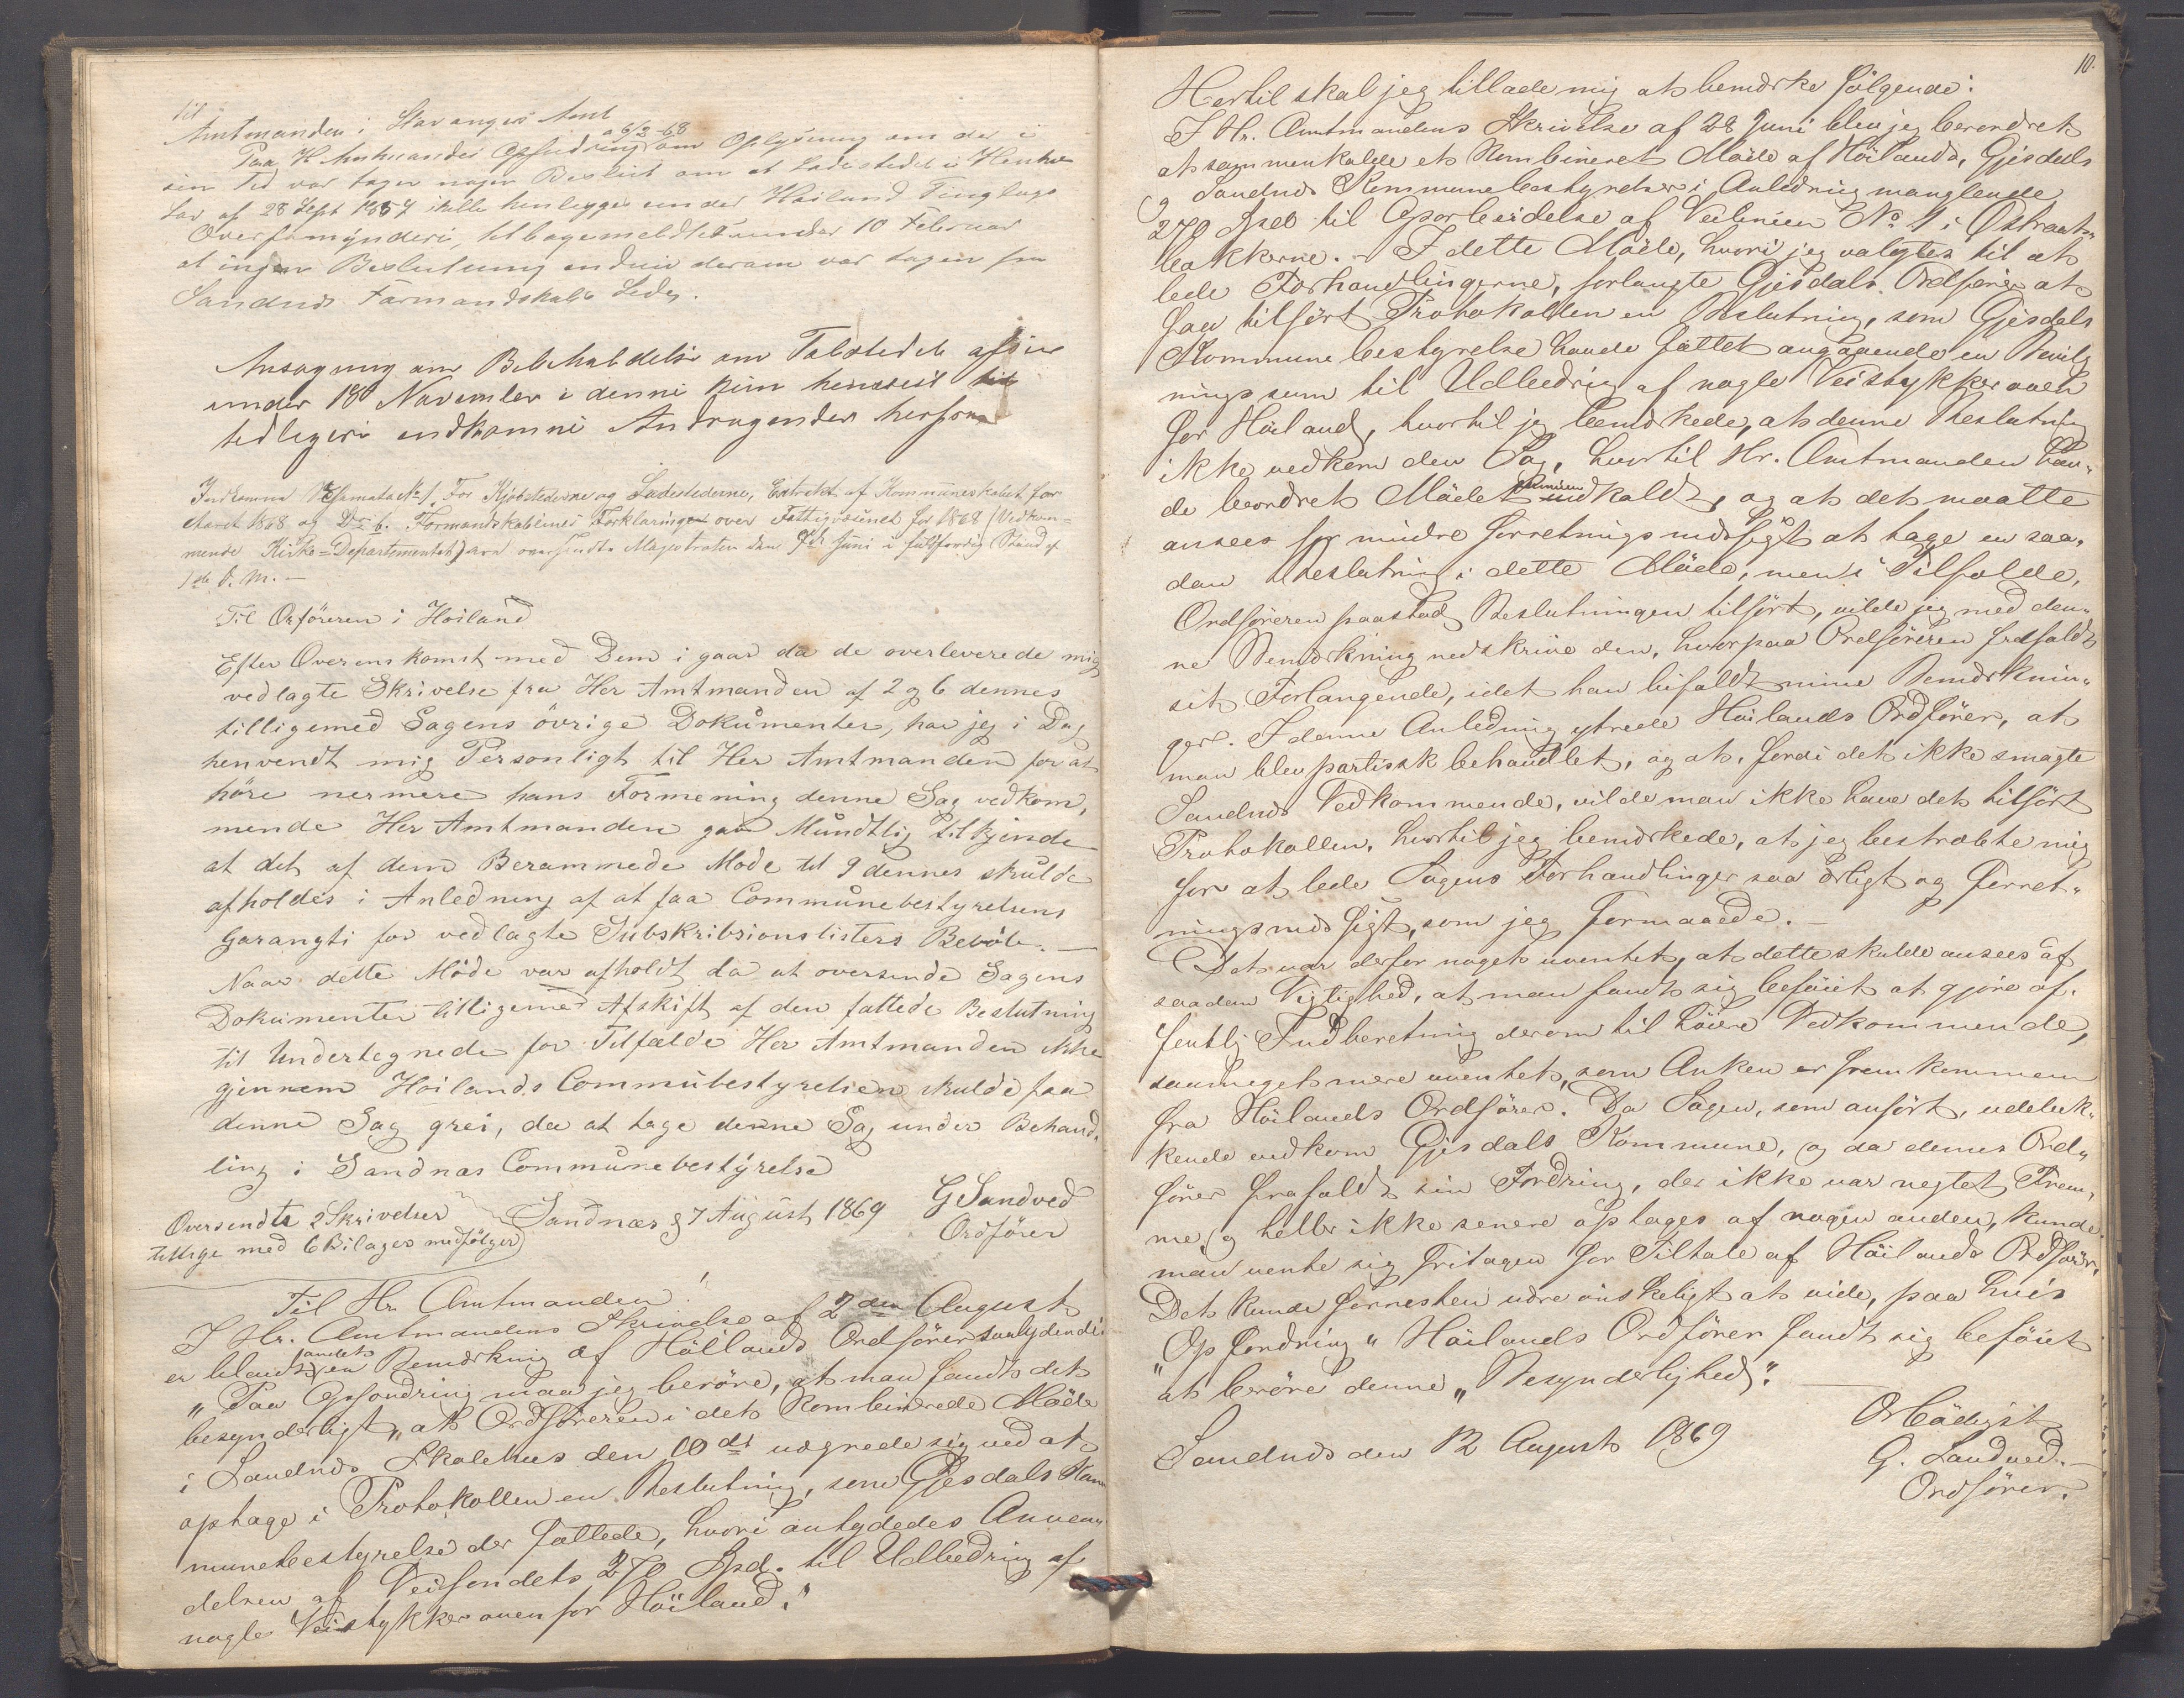 til
Amtmanden i Stavanger Amt
Paa H Amtmandes Opfodring a 6/2-68 om Oplysning om der i
sin Tid var tagen nogen Beslut om at Ladestedet i Henhold
Lov af 28 Sept 1857 skulle henlegges under Høiland Tinglags
Overformynderi, tilbagemeldtes under 10 Februar
at ingen Beslutning endnu derom var tagen fra
Sandnæs Formandskabs Side.
Ansøgning om Bibeholdelse om Toldstedet afsen
under 18 November i denni
tidligere indkomni Andragender herfra
Indkomne Schemata No 1, For Kjøbstederne og Ladestederne, Extrakt af Kommuneskabet for
Aaret 1868 og Do 6. Formandskabernes Forklaringer over Fattigvæsenet for 1868 (Vedkom=
mende Kirke=Departementet) ere oversendte Magistraten den Juni i fuldfærdig Stand af
1ste d. M. —
Til Orføreren i Høiland
Efter Overenskomst med Dem i gaar da de overleverede mig
vedlagte Skrivelse fra Her Amtmanden af 2 og 6 dennes
tilligemed Sagens övrige Dokumenter, har jeg i Dag
henvendt mig Personligt til Her Amtmanden for at
höre nermere hans Formening denne Sag vedkom,
mende Her Amtmanden gav Mundtlig tilkjende
at det af dem Berammede Mode til 9 dennes skulde
afholdes i Anledning af at faa Communebestyrelsens
Garangti for vedlagte Subskribsionslisters Belöb. —
Naar dette Möde var afholdt da at oversende Sagens
Dokumenter tilligemed Afskift af den fattede Beslutning
til Undertegnede for Tilfælde Her Amtmanden ikke
gjennem Hoilands Commubestyrelsen skulde faa
denne Sag grei, da at tage denne Sag under Behand,
ling i Sandnæs Communebestyrelse
Oversendte 2 Skrivelser Sandnæs d 7 August 1869 G Sandved
tillige med 6 Bilager medfölger Ordförer
Til Hr. Amtmanden!
I Hr. Amtmandens Skrivelse af 2den August
er blandt andet en Bemærkning af Höilands Ordförer saalydende:
"Paa Opfordring maa jeg beröre, at man fandt det
besynderligt, at Ordföreren i det Kombinerede Möde
i Sandnæs Skolehus den 10de vægrede sig ved at
optage i Protokollen en Beslutning, som Gjesdals Kom
munebestyrelse der fattede, hvori antydedes Anven
delsen af Veifondets 270 Spd. til Udbedring af
nogle Veistykker ovenfor Höiland."
10.
Hertil skal jeg tillade mig at bemærke fölgende:
I Hr. Amtmandens Skrivelse af 28 Juni blev jeg beordret
at sammenkalde et Kombineret Möde af Höilands, Gjesdals
og Sandnæs Kommunebestyrelser i Anledning manglende
270 Spd til Oparbeidelse af Veilinien No 4 i Østraat=
bakkerne. – I dette Möde, hvori jeg valgtes til at
lede Forhandlingerne, forlangte Gjesdals Ordförer at
faa tilfört Protokollen en Beslutning, som Gjesdals
Kommunebestyrelse havde fattet angaaende en Bevilg
ningssum til Udbedring af nogle Veistykker oven
for Höiland, hvortil jeg bemærkede, at denne Beslutning
ikke vedkom den Sag, hvortil Hr. Amtmanden hav,
de beordret Mödet kaldt, og at det maatte
ansees for mindre forretningsmæssigt at tage en saa,
dan Beslutning i dette Möde, men i Tilfælde,
Ordföreren paastod Beslutningen tilfört, vilde jeg med den,
ne Bemærkning nedskrive den, hvorpaa Ordföreren frafaldt
sit Forlangende, idet han bifaldt mine Bemærknin,
ger. I denne Anledning ytrede Höilands Ordförer, at
man blev partisk behandlet, og at, fordi det ikke smagte
Sandnæs Vedkommende, vilde man ikke have det tilfört
Protokollen, hvortil jeg bemærkede, at jeg bestræbte mig
for at lede Sagens Forhandlinger saa ærligt og forret,
ningsmæssigt, som jeg formaaede. –
Det var derfor noget uventet, at dette skulde ansees af
saadan Vigtighed, at man fandt sig beföiet at gjöre of,
fentlig Indberetning derom til höiere Vedkommende,
saameget mere uventet, som Anken er fremkommen
fra Höilands Ordförer. Da Sagen, som anfört, udeluk,
kende vedkom Gjesdals Kommune, og da dennes Ord,
förer frafaldt sin Fordring, der ikke var negtet Frem,
me, og heller ikke senere optages af nogen anden, kunde
man vente sig fritagen for Tiltale af Höilands Ordförer.
Det kunde forresten være önskeligt at vide, paa hvis
"Opfordring" Höilands Ordförer fandt sig beföiet
at beröre denne "Besynderlighed". –
Sandnæs den 12 August 1869
Ærbödigst
G. Sandved. –
Ordförer.